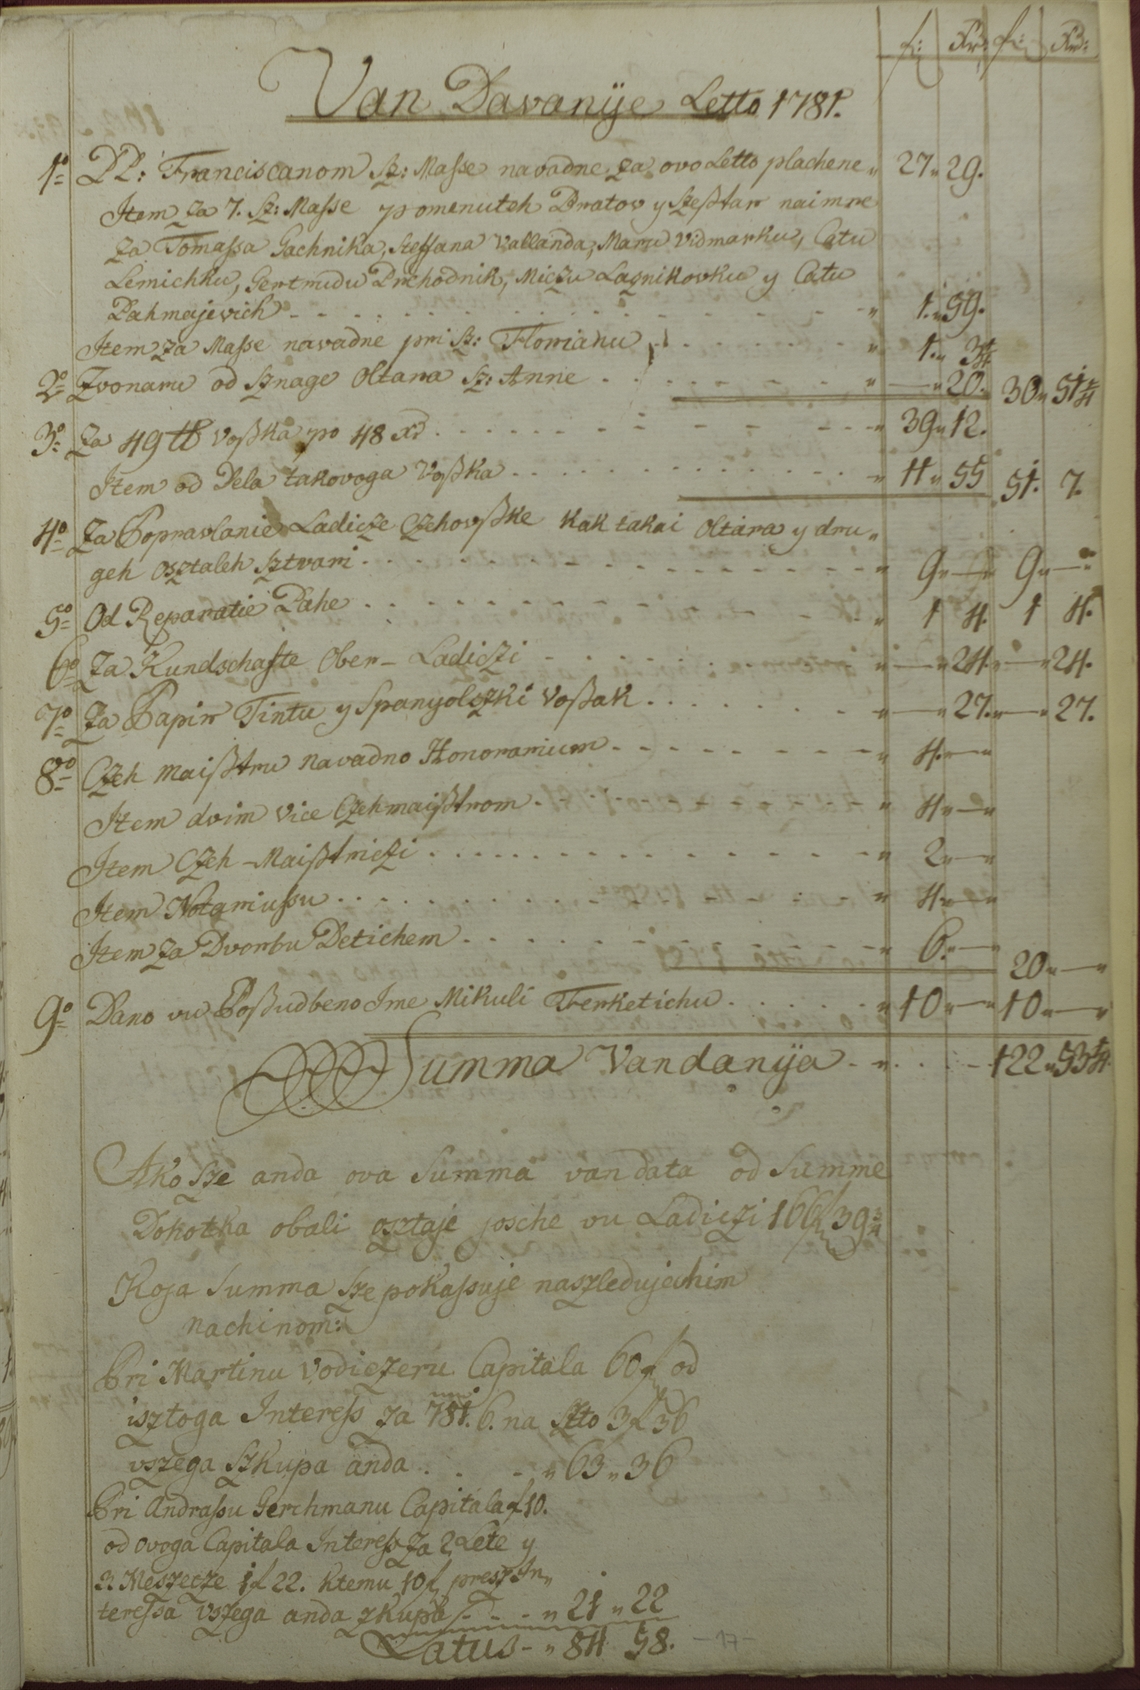 f: Xr: f: Xr:
Van Davanÿe Letto 1781.
1o PP: Franciscanom Sz: Masse navadne za ovo Letto plachene 27 29.
Item za 7. Sz: Masse pomenuteh Bratov y Szeßtar naimre
za Tomassa Gachnika, Steffana Vallanda, Maru Vidmarku, Catu
Lemichku, Gertrudu Prihodnik, Miczu Lasnikovku y Catu
Pahmajevich 1. 59.
Item za Masse navadne pri Sz: Florianu 1. 3¾
2o Zvonaru od sznage Oltara Sz: Anne — 20. 30 51¾
3o Za 49 ℔ Voßka po 48 xr 39 12.
Item od Dela takovoga Voßka 11 55 51. 7.
4o Za Popravlanie Ladicze Czehovßke kak takai Oltara y dru
geh osztaleh sztvari 9 — 9 —
5o Od Reparatie Pahe 1 4. 1 4.
6o Za Kundschafte Ober-Ladiczi — 24. — 24.
7o Za Papir Tintu y Spanyolszki Voßak — 27. — 27.
8o Czeh maißtru navadno Honorarium 4. —
Item dvim Vice Czehmaißtrom 4 —
Item Czeh-Maißtriczi 2 —
Item Notariussu 4 —
Item za Dvorbu Detichem 6. — 20 —
9o Dano vu Poßudbeno Ime Mikuli Ferketichu 10 — 10 —
Summa Vandanÿa 122 53¾
Ako sze anda ova Summa van data od Summe
Dohotka obali osztaje josche vu Ladiczi 166 f 39¾
Koja Summa sze pokassuje naszledujechim
nachinom:
Pri Martinu Vodiczeru Capitala 60 f od
isztoga Interess za 781. 6. na szto 3 f 36
vszega szkupa anda 63 36
Pri Andrassu Gerchmanu Capitala f 10.
od ovoga Capitala Interess za 2 Lete y
3 Meszecze 1 f 22. Ktemu 10 f, presz In
teressa vszega anda zkupa 21 22
Latus 84 58.
-17-